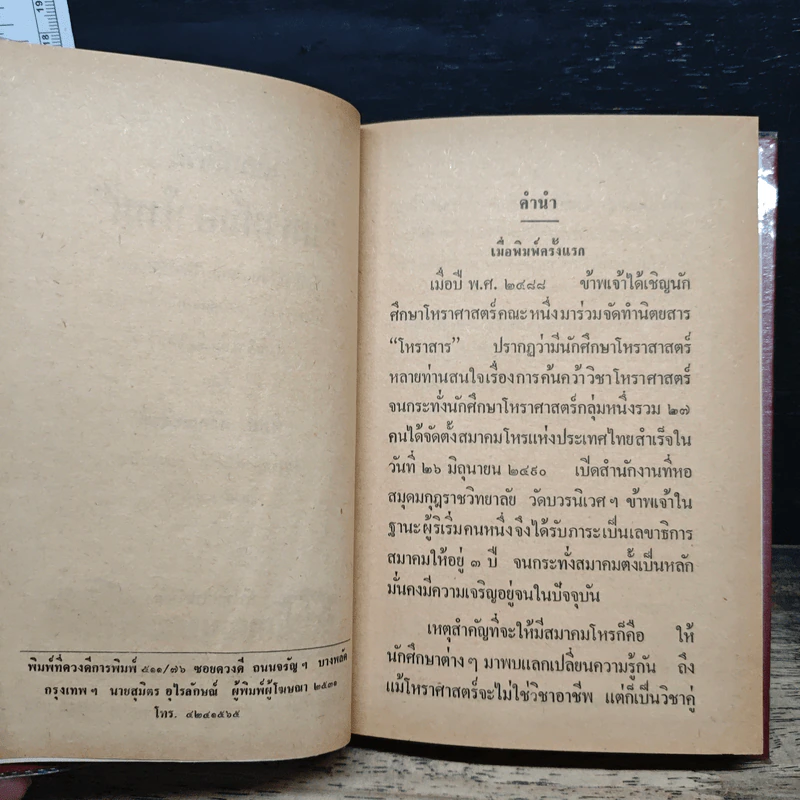 พิมพ์ที่ดวงดีการพิมพ์ ๕๑๑/๗๖ ซอยดวงดี ถนนจรัญฯ บางพลัด
กรุงเทพฯ นายสุมิตร อุไรลักษณ์ ผู้พิมพ์ผู้โฆษณา ๒๕๓๑
โทร. ๔๒๔๑๕๖๕
คำนำ
เมื่อพิมพ์ครั้งแรก
เมื่อปี พ.ศ. ๒๔๘๘ ข้าพเจ้าได้เชิญนัก
ศึกษาโหราศาสตร์คณะหนึ่งมาร่วมจัดทำนิตยสาร
“โหราสาร” ปรากฏว่ามีนักศึกษาโหราสาสตร์
หลายท่านสนใจเรื่องการค้นคว้าวิชาโหราศาสตร์
จนกระทั่งนักศึกษาโหราศาสตร์กลุ่มหนึ่งรวม ๒๗
คนได้จัดตั้งสมาคมโหรแห่งประเทศไทยสำเร็จใน
วันที่ ๒๖ มิถุนายน ๒๔๙๐ เปิดสำนักงานที่หอ
สมุดมกุฎราชวิทยาลัย วัดบวรนิเวศฯ ข้าพเจ้าใน
ฐานะผู้ริเริ่มคนหนึ่งจึงได้รับภาระเป็นเลขาธิการ
สมาคมให้อยู่ ๓ ปี จนกระทั่งสมาคมตั้งเป็นหลัก
มั่นคงมีความเจริญอยู่จนในปัจจุบัน
เหตุสำคัญที่จะให้มีสมาคมโหรก็คือ ให้
นักศึกษาต่างๆ มาพบแลกเปลี่ยนความรู้กัน ถึง
แม้โหราศาสตร์จะไม่ใช่วิชาอาชีพ แต่ก็เป็นวิชาคู่
18
19